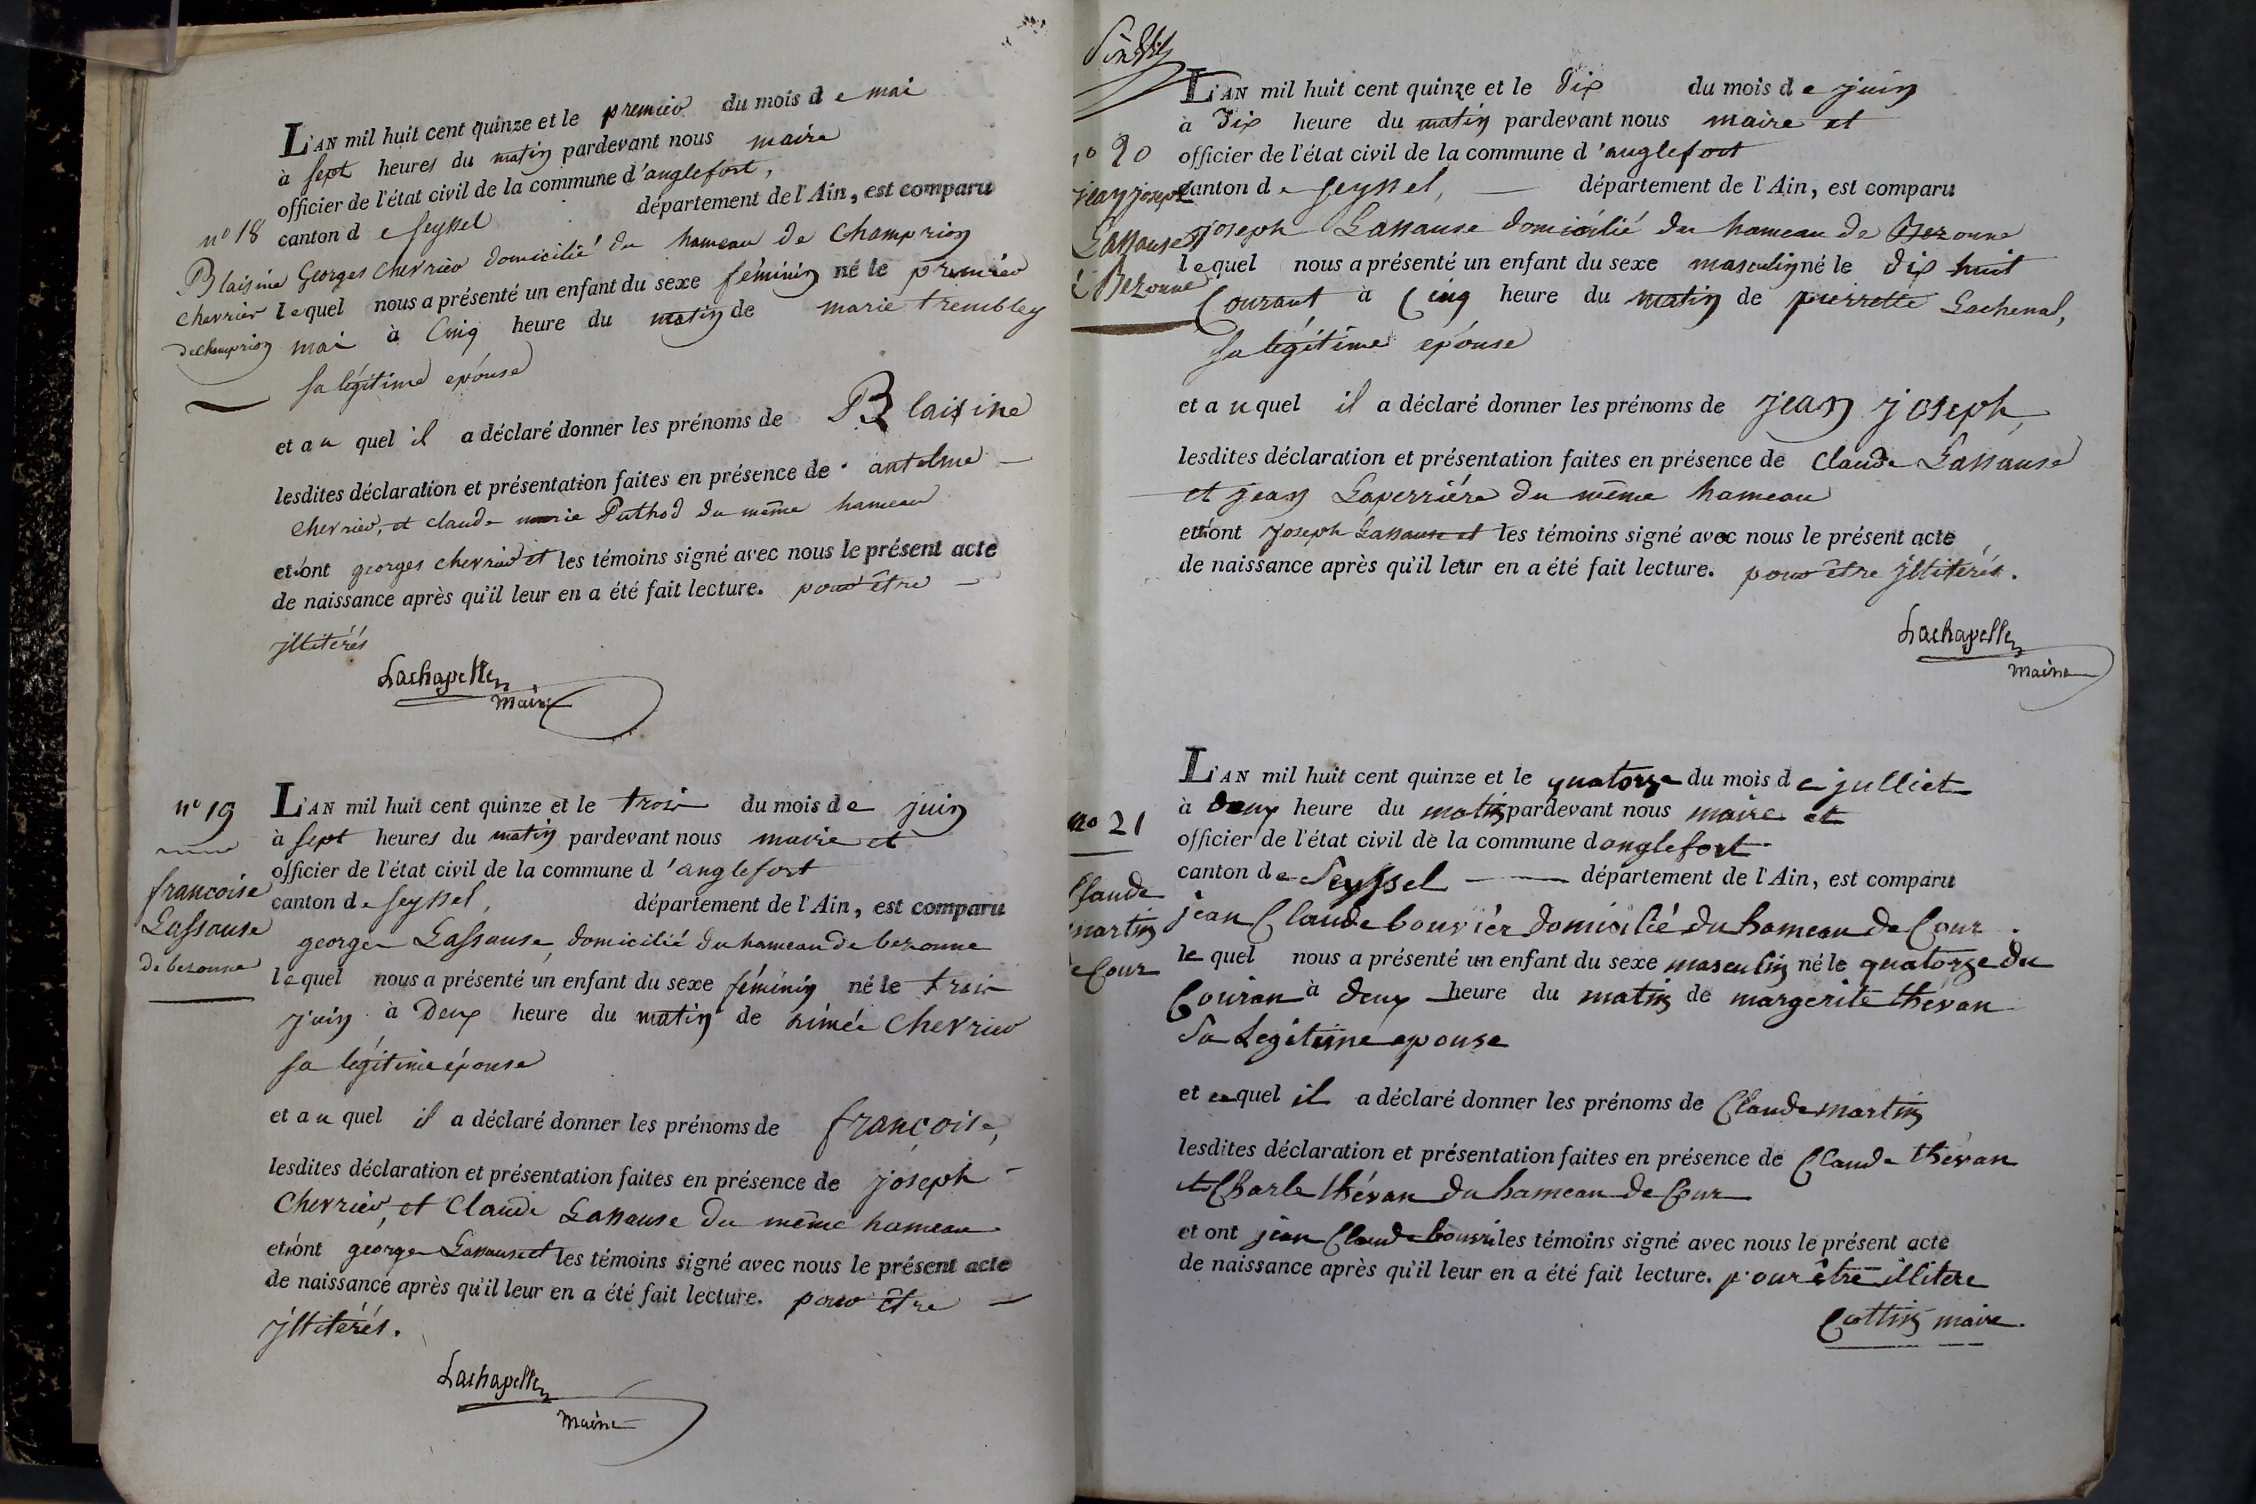 L'AN mil huit cent quinze et le premier du mois de mai
à sept heures du matin pardevant nous maire
officier de l'état civil de la commune d'anglefort,
canton de seyssel département de l'Ain, est comparu
n° 18
Blaisine
chevrier
de Champrion
Georges chevrier domicilié du hameau de Champrion
lequel nous a présenté un enfant du sexe féminin né le premier
mai à Cinq heure du matin de marie trembley
sa légitime epouse
et au quel il a déclaré donner les prénoms de Blaisine
lesdites déclaration et présentation faites en présence de antelme
chevrier, et claude marie Puthod du même hameau
et n'ont georges chevrier et les témoins signé avec nous le présent acte
de naissance après qu'il leur en a été fait lecture. pour être
illitérés
Lachapelle
Maire
n° 19
francoise
Lassause
de bezonne
L'AN mil huit cent quinze et le trois du mois de juin
à sept heures du matin pardevant nous maire et
officier de l'état civil de la commune d'anglefort
canton de seyssel, département de l'Ain, est comparu
george Lassause, domicilié du hameau de bezonne
lequel nous a présenté un enfant du sexe féminin né le trois
juin à Deux heure du matin de aimée Chevrier
sa légitime épouse
et au quel il a déclaré donner les prénoms de françoise,
lesdites déclaration et présentation faites en présence de joseph
Chevrier, et Claude Lassause du même hameau
et n'ont george Lassause et les témoins signé avec nous le présent acte
de naissance après qu'il leur en a été fait lecture. pour être
illitérés.
Lachapelle
Maire
L'AN mil huit cent quinze et le dix du mois de juin
à Dix heure du matin pardevant nous maire et
officier de l'état civil de la commune d'anglefort
canton de seyssel, département de l'Ain, est comparu
n° 20
jean joseph
Lassause
Bezonne
joseph Lassause domicilié du hameau de Bezonne
lequel nous a présenté un enfant du sexe masculin né le dix huit
Courant à Cinq heure du matin de pierrette Lachenal,
sa légitime epouse
et auquel il a déclaré donner les prénoms de jean joseph,
lesdites déclaration et présentation faites en présence de Claude Lassause
et jean Laperrière du même hameau
et n'ont joseph Lassause et les témoins signé avec nous le présent acte
de naissance après qu'il leur en a été fait lecture. pour être illitérés.
Lachapelle
Maire
L'AN mil huit cent quinze et le quatorze du mois de julliet
à deux heure du matin pardevant nous maire et
officier de l'état civil de la commune danglefort
canton de Seyssel département de l'Ain, est comparu
no 21
Claude
martin
de Cour
jean Claude bouvier domicilié du hameau de Cour
le quel nous a présenté un enfant du sexe masculin né le quatorze du
Couran à deux heure du matin de margerite thévan
sa Legitime epouse
et auquel il a déclaré donner les prénoms de Claude martin
lesdites déclaration et présentation faites en présence de Claude thévan
et Charle thévan du hameau de Cour
et ont jean Claude bouvié les témoins signé avec nous le présent acte
de naissance après qu'il leur en a été fait lecture. pour être illitere
Cottin maire